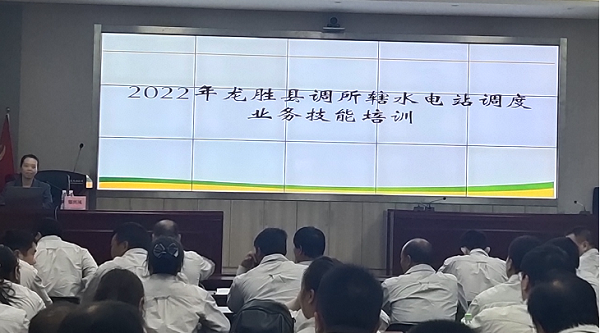 2022年龙胜县调所辖水电站调度
业务技能培训